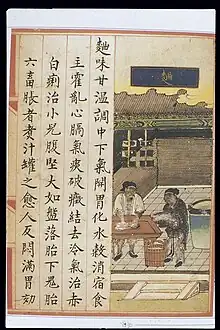 麯味甘溫調中下氣開胃化水穀消宿食
主霍亂心膈氣痰破癥結去冷氣治赤
白痢治小兒腹堅大如盤落胎下鬼胎
六畜脹者煮汁罐之愈人反悶滿胃